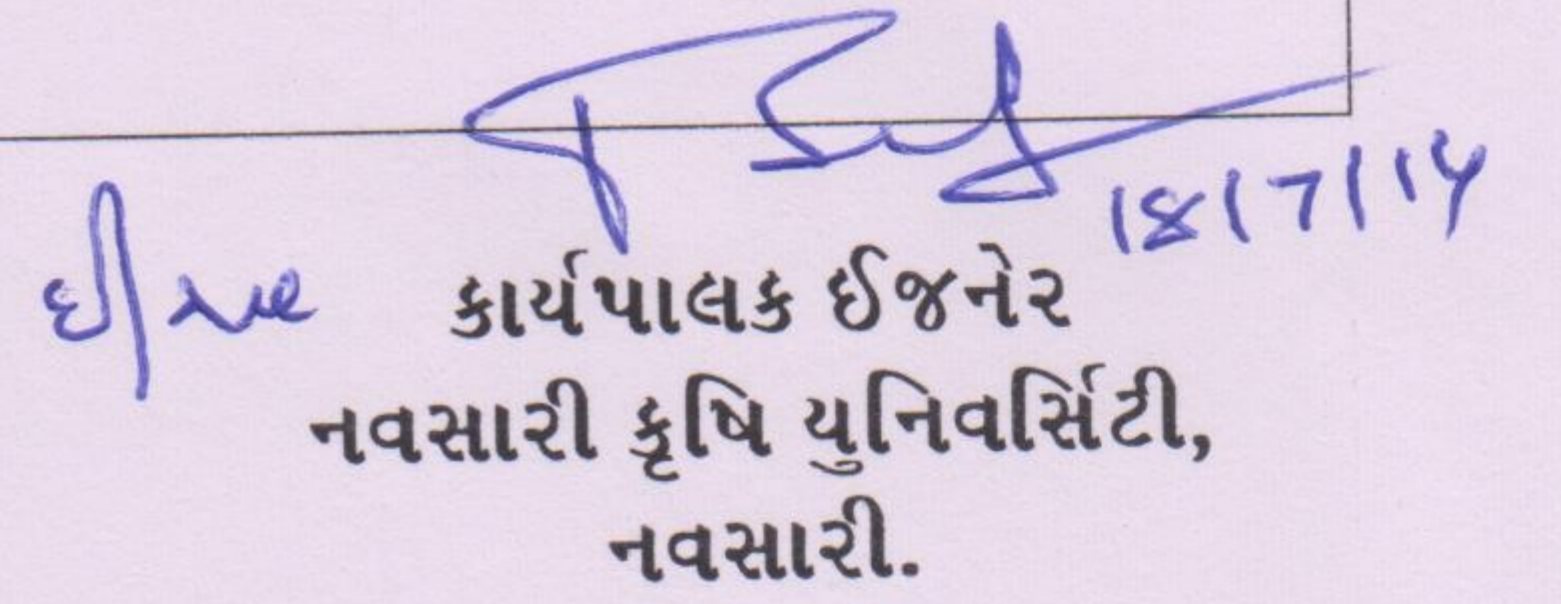 18/7/14
કાર્યપાલક ઈજનેર
નવસારી કૃષિ યુનિવર્સિટી,
નવસારી.